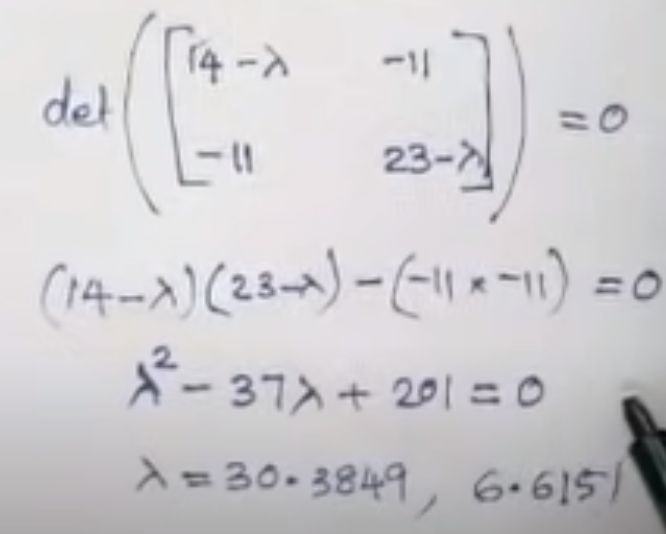 det([14-λ -11
-11 23-λ]) = 0
(14-λ)(23-λ) - (-11 × -11) = 0
λ² - 37λ + 201 = 0
λ = 30.3849, 6.6151